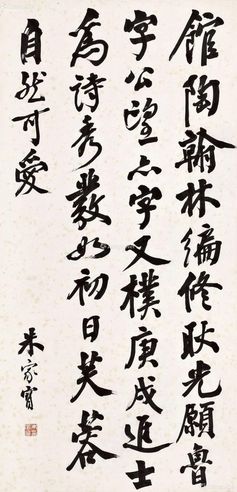 館陶翰林編修耿光願魯
字公望一字又樸庚戌進士
為詩秀發如初日芙蓉
自然可愛
朱家寶